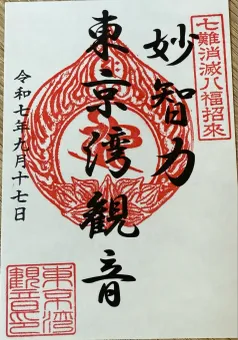 七難消滅八福招来
妙智力
東京湾観音
令和七年九月十七日
東京湾
観音印